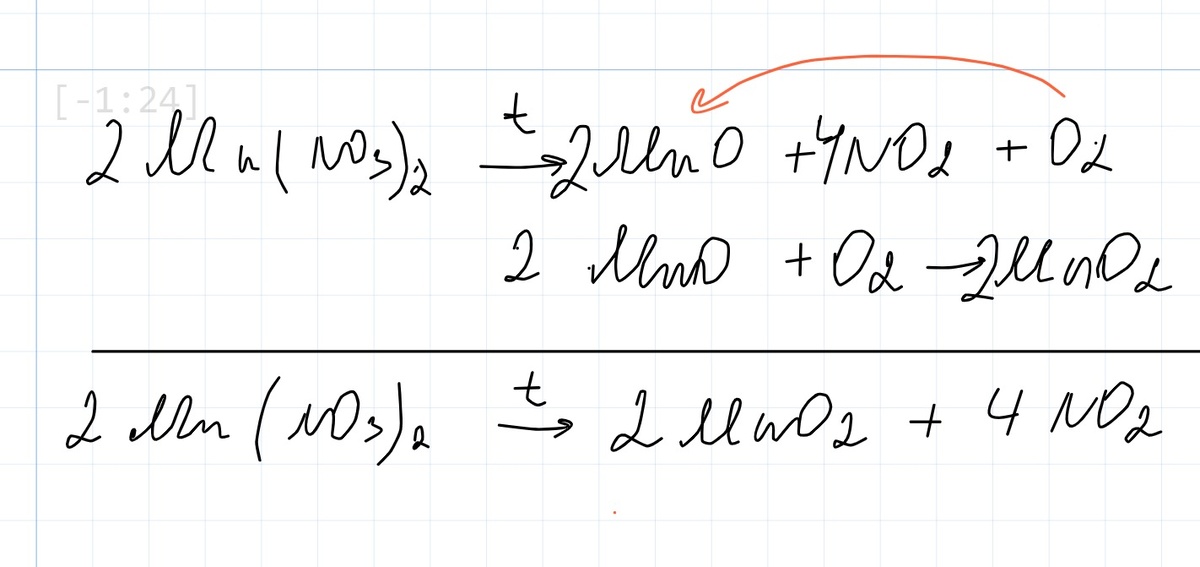 [-1:24]
2 Mn(NO₃)₂ →ᵗ 2MnO + 4NO₂ + O₂
2 MnO + O₂ → 2MnO₂
2 Mn(NO₃)₂ →ᵗ 2MnO₂ + 4NO₂